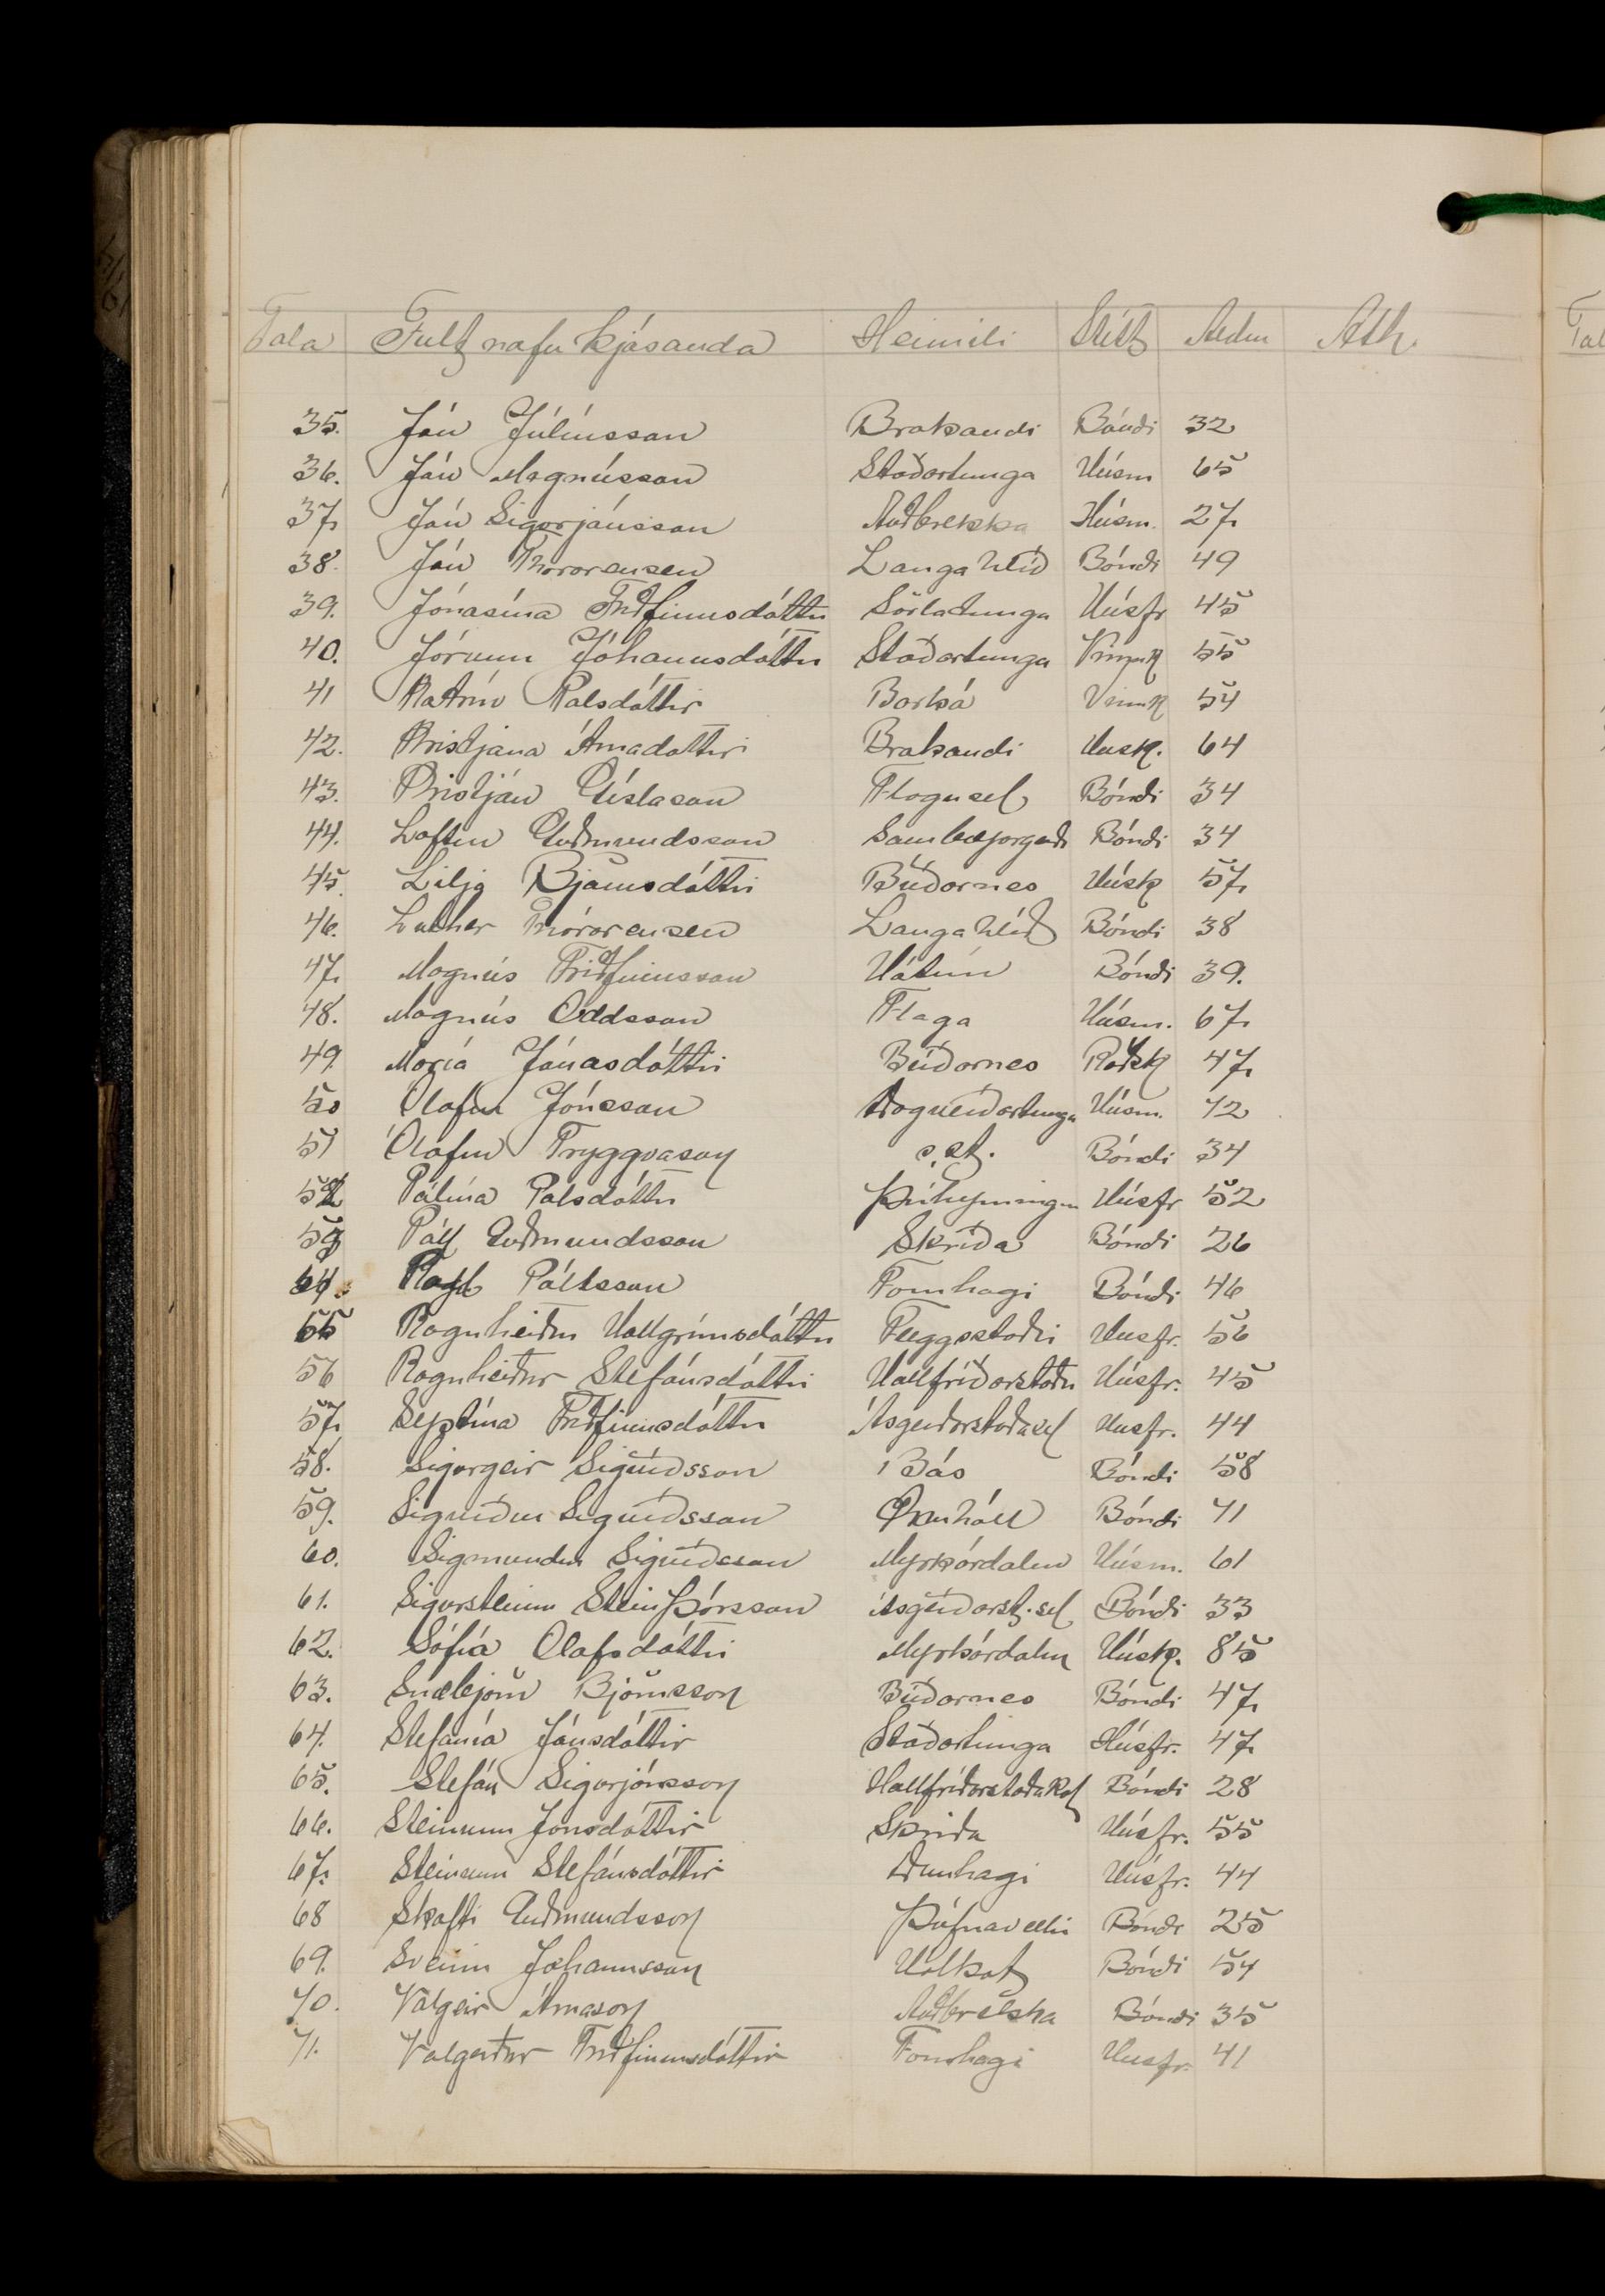 Tala Fult nafn kjósanda Heimili Stétt Aldur Ath.
35. Jón Júlíusson Brakandi Bóndi 32
36. Jón Magnússon Staðartunga Húsm 65
37. Jón Sigurjónsson Auðbrekka Húsm. 27
38. Jón Thorarensen Langahlíð Bóndi 49
39. Jónasína Friðfinnsdóttir Sörlatunga Húsfr 45
40. Jórunn Jóhannsdóttir Staðartunga Vinnuk 55
41 Katrín Pálsdóttir Barká Vinnuk 54
42. Kristjana Árnadóttir Brakandi Husk. 64
43. Kristján Gíslason Flögusel Bóndi 34
44. Loftur Guðmundsson Saurbæjargerði Bóndi 34
45. Lilja Bjarnsdóttir Búðarnes Húsk 57
46. Luther Thórarensen Langahlíð Bóndi 38
47. Magnús Friðfinnsson Hátún Bóndi 39.
48. Magnús Oddsson Flaga Húsm. 67
49. María Jónasdóttir Búðarnes Ráðsk 47
50 Ólafur Jónsson Dagverðartunga Húsm. 72
51 Ólafur Tryggvason s.st. Bóndi 34
52 Pálína Pálsdóttir Þríhyrningur Húsfr 52
53 Páll Guðmundsson Skriða Bóndi 26
54. Páll Pálsson Fornhagi Bóndi 46
55 Ragnheiður Hallgrímsdóttir Flöggustaðir Husfr. 56
56 Ragnheiður Stefánsdóttir Hallfríðarstaðir Húsfr. 45
57. Septína Friðfinnsdóttir Ásgerðarstaðasel Husfr. 44
58. Sigurgeir Sigurðsson Bás Bóndi 58
59. Sigurður Sigurðsson Öxnhóll Bóndi 71
60. Sigmundur Sigurðsson Myrkárdalur Húsm. 61
61. Sigursteinn Steinþórsson Ásgerðarst.sel Bóndi 33
62. Sófía Ólafsdóttir Myrkárdalur Húsk. 85
63. Snæbjörn Björnsson Búðarnes Bóndi 47
64. Stefanía Jónsdóttir Staðartunga Húsfr. 47
65. Stefán Sigurjónsson Hallfríðarstaðakot Bóndi 28
66. Steinunn Jónsdóttir Skriða Húsfr. 55
67. Steinunn Stefánsdóttir Dunhagi Húsfr. 44
68 Skafti Guðmundsson Þúfnavellir Bóndi 25
69. Sveinn Jóhannsson Hólkot Bóndi 54
70. Valgeir Árnason Auðbrekka Bóndi 35
71. Valgerður Friðfinnsdóttir Fornhagi Husfr. 41